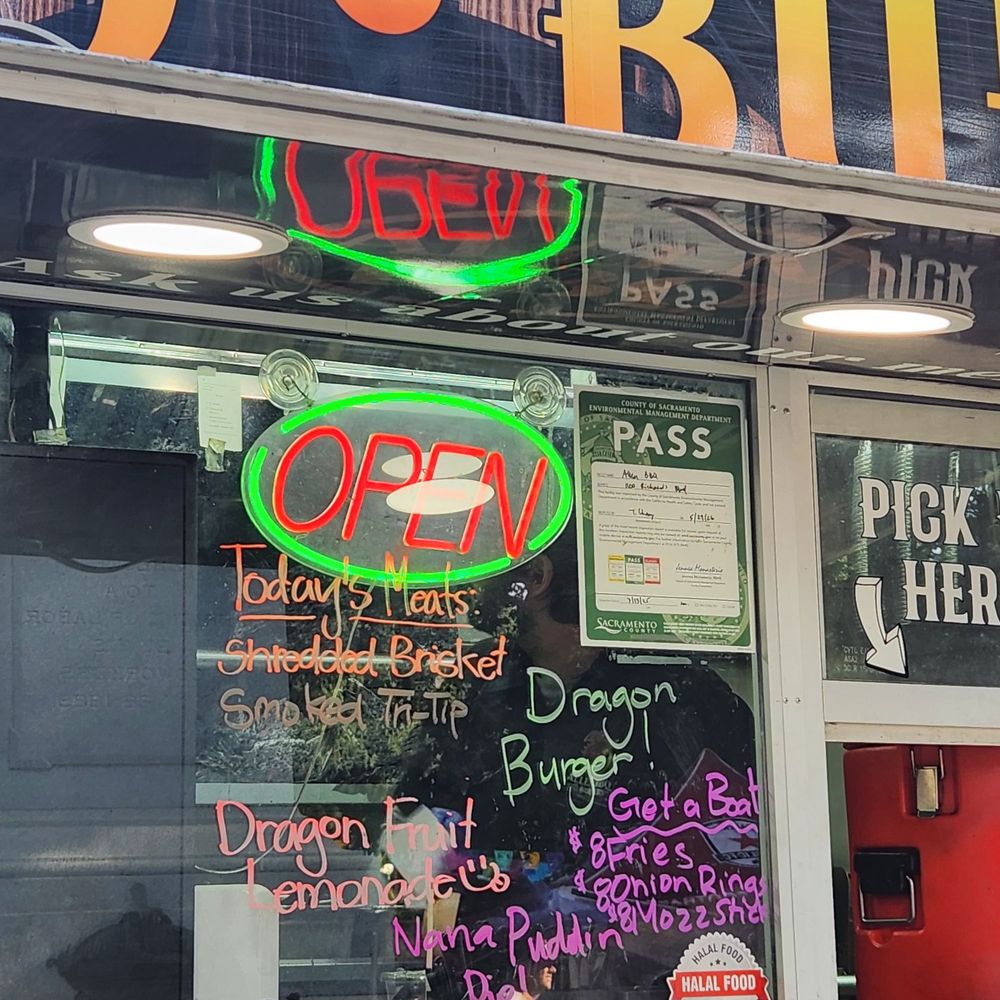 BU
Ask us about our me
OPEN
COUNTY OF SACRAMENTO
ENVIRONMENTAL MANAGEMENT DEPARTMENT
PASS
5/29/26
PASS
7/17/25
SACRAMENTO
COUNTY
PICK
HER
Today's Meats:
Shredded Brisket
Smoked Tri-Tip
Dragon
Burger!
Dragon Fruit
Lemonade
Get a Boat
$8 Fries
$8 Onion Rings
$8 Mozz Stix
Nana Puddin
HALAL FOOD
HALAL FOOD